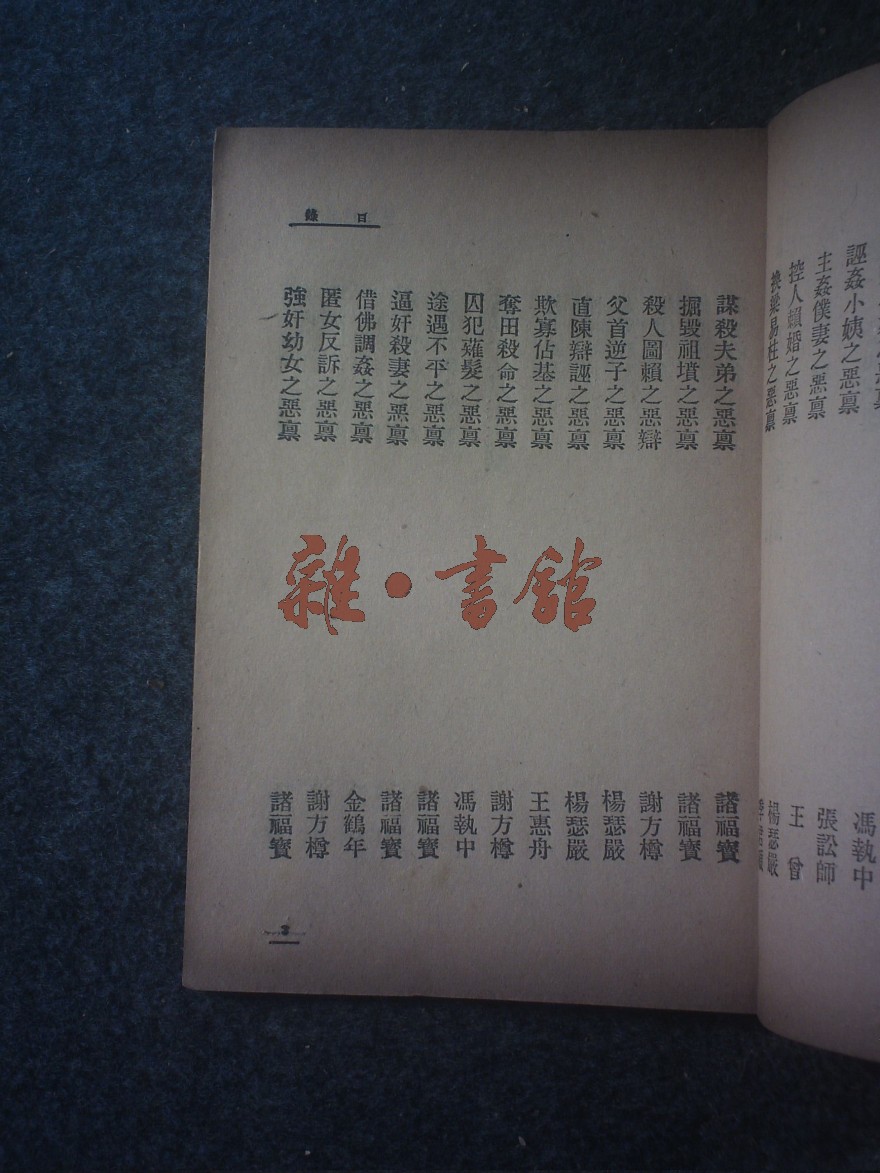 誣姦小姨之惡禀 馮執中
主姦僕妻之惡禀 張訟師
控人賴婚之惡禀 王曾
換梁易柱之惡禀 楊瑟嚴
目錄
謀殺夫弟之惡禀 諸福寶
掘毀祖墳之惡禀 諸福寶
殺人圖賴之惡辯 謝方樽
父首逆子之惡禀 楊瑟嚴
直陳辯誣之惡禀 楊瑟嚴
欺寡佔基之惡禀 王惠舟
奪田殺命之惡禀 謝方樽
囚犯薙髮之惡禀 馮執中
途遇不平之惡禀 諸福寶
逼奸殺妻之惡禀 諸福寶
借佛調姦之惡禀 金鶴年
匿女反訴之惡禀 謝方樽
強奸幼女之惡禀 諸福寶
3
雜·書館